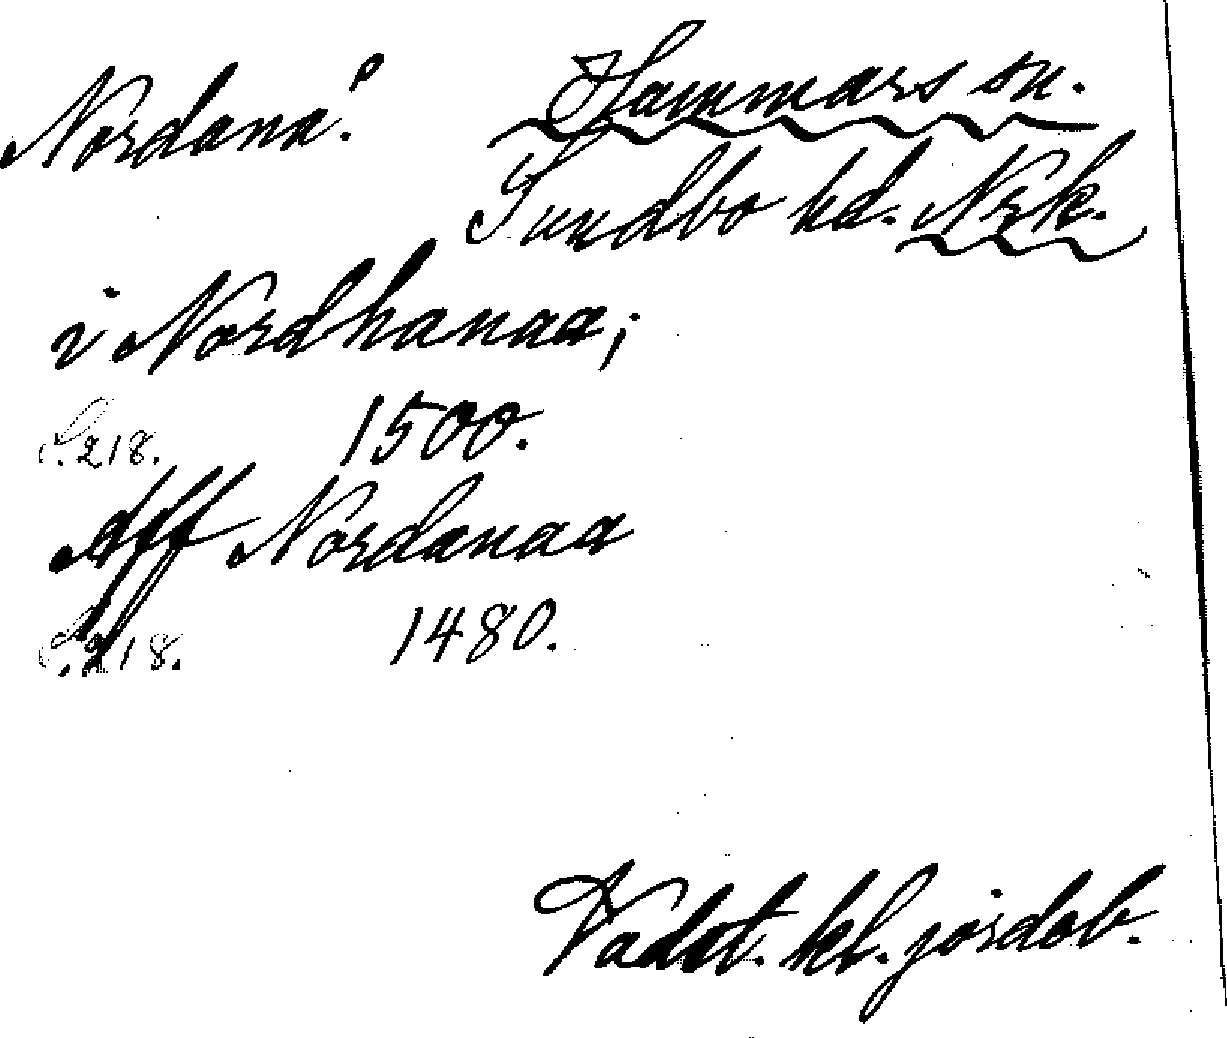 Nordanå. Hammars sn.
Sundbo hd. Nrk.
i Nordhanaa;
S. 218. 1500.
Aff Nordanaa
S. 218. 1480.
Vadst. kl. jordab.